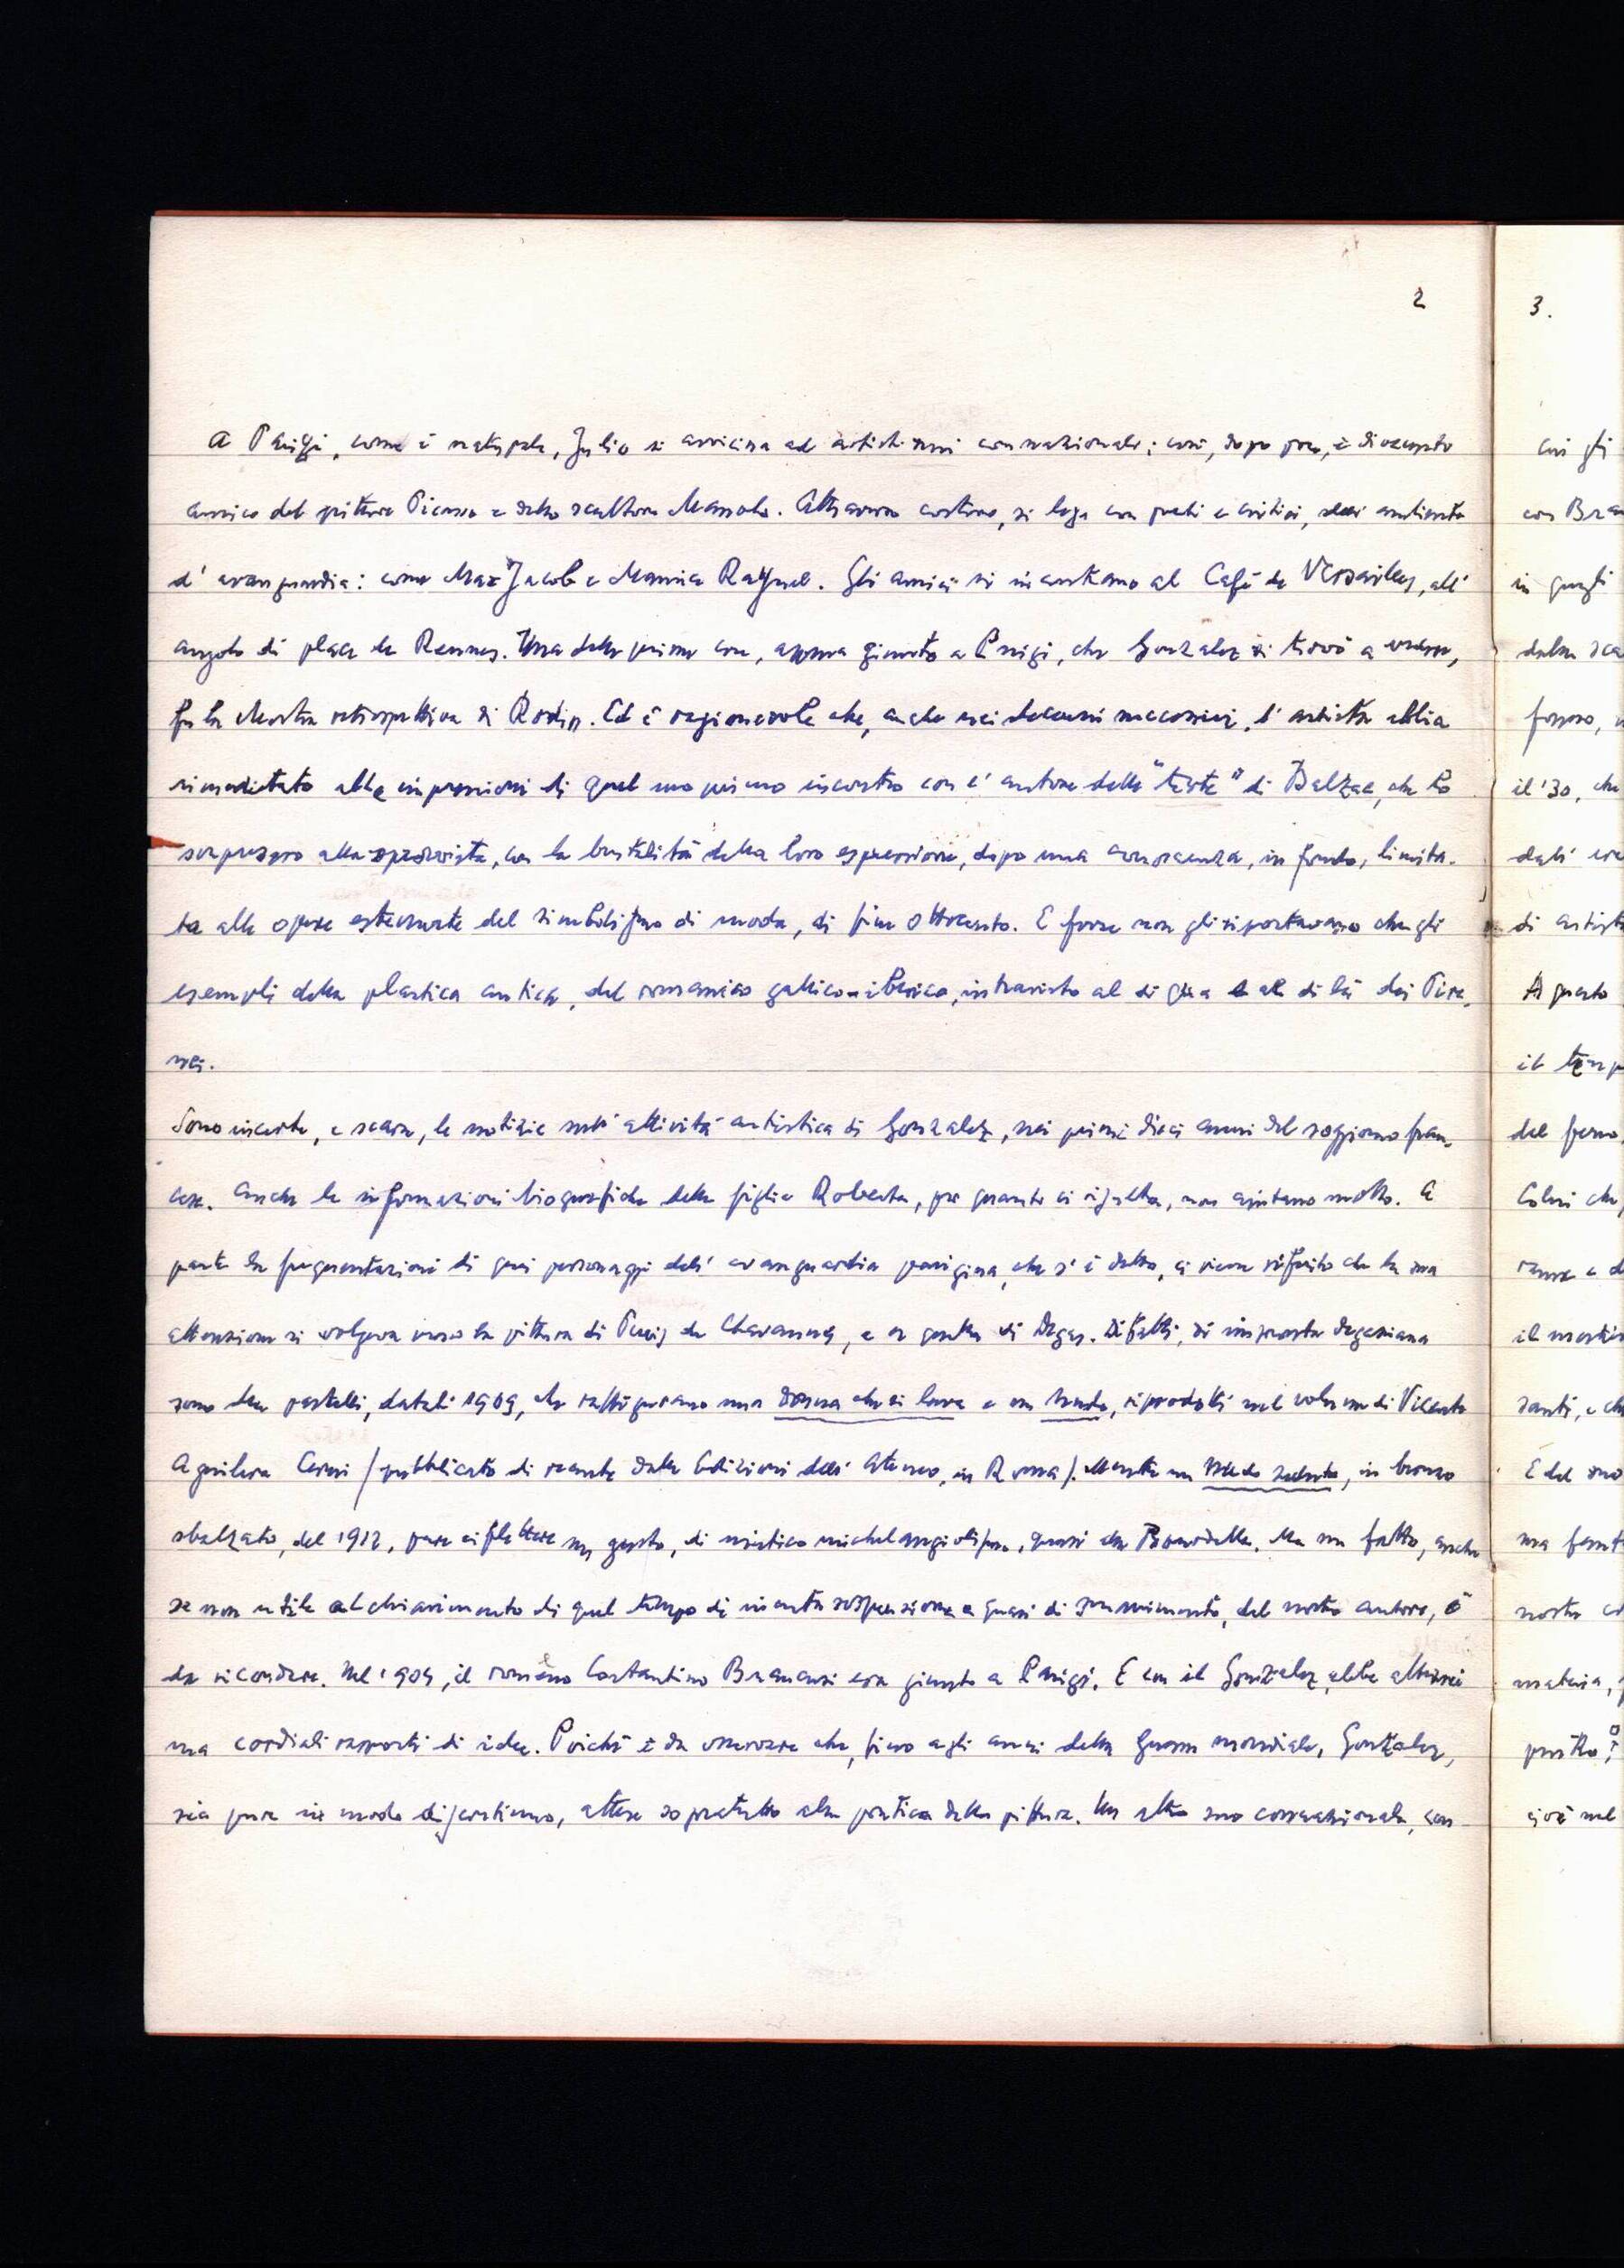 2
A Parigi, come è naturale, Julio si avvicina ad artisti suoi connazionali; così, dopo poco, è divenuto
amico del pittore Picasso e dello scultore Manolo. Attraverso costoro, si lega con poeti e critici, dell'ambiente
d'avanguardia: come Max Jacob e Maurice Raynal. Gli amici si incontrano al Café de Versailles, all'
angolo di place de Rennes. Una delle prime cose, appena giunto a Parigi, che Gonzalez si trovò a vedere,
fu la Mostra retrospettiva di Rodin. Ed è ragionevole che, anche nei decenni successivi, l'artista abbia
rimeditato alle impressioni di quel suo primo incontro con l'autore delle "teste" di Balzac, che lo
sorpresero alla sprovvista, con la brutalità della loro espressione, dopo una conoscenza, in fondo, limita-
ta alle opere estenuate del simbolismo di moda, di fine ottocento. E forse non gli riportavano che gli
esempi della plastica antica, del romanico gallico-iberico, intravisto al di qua e al di là dei Pire-
nei.
Sono incerte, e scarse, le notizie sull'attività artistica di Gonzalez, nei primi dieci anni del soggiorno fran-
cese. Anche le informazioni biografiche della figlia Roberta, per quanto ci risulta, non aiutano molto. A
parte la frequentazione di quei personaggi dell'avanguardia parigina, che s'è detto, ci viene riferito che la sua
attenzione si volgeva verso la pittura di Puvis de Chavannes, e a quella di Degas. Difatti, di impronta degasiana
sono due pastelli, datati 1909, che raffigurano una donna che si lava e un nudo, riprodotti nel volume di Vicente
Aguilera Cerni /pubblicato di recente dalle Edizioni dell'Ateneo, in Roma/. Mentre un Nudo seduto, in bronzo
sbalzato, del 1912, pare riflettere un gusto, di mistico michelangiolismo, quasi da Bourdelle. Ma un fatto, anche
se non utile al chiarimento di quel tempo di incerta sospensione e quasi di smarrimento, del nostro autore, è
da ricordare. Nel 1904, il romeno Costantino Brancusi era giunto a Parigi. E con il Gonzalez ebbe altresì
una cordiali rapporti di idee. Poiché è da osservare che, fino agli anni della guerra mondiale, Gonzalez,
sia pure in modo discontinuo, attese sopratutto alla pratica della pittura. Un altro suo connazionale, con
3.
cui gli
con Bra
in quegli
della sca
fosse,
il '30, che
dati
di artist
A questo
il temp
del ferro,
Colui che,
il mestie
santi, e ch
E del suo
nostro
materia,
cioè nel